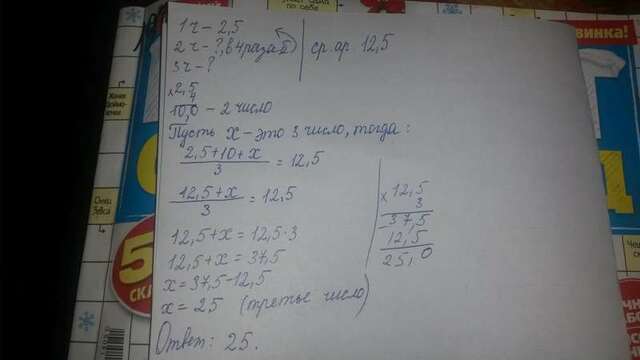 1 ч - 2,5
2 ч - ?, в 4 раза б
3 ч - ?
ср. ар. 12,5
× 2,5
4
10,0 - 2 число
Пусть x - это 3 число, тогда:
2,5+10+x
3
= 12,5
12,5+x
3
= 12,5
12,5+x = 12,5·3
12,5+x = 37,5
x = 37,5-12,5
x = 25 (третье число)
Ответ: 25.
× 12,5
3
- 37,5
12,5
25,0
по себе
винка!
5